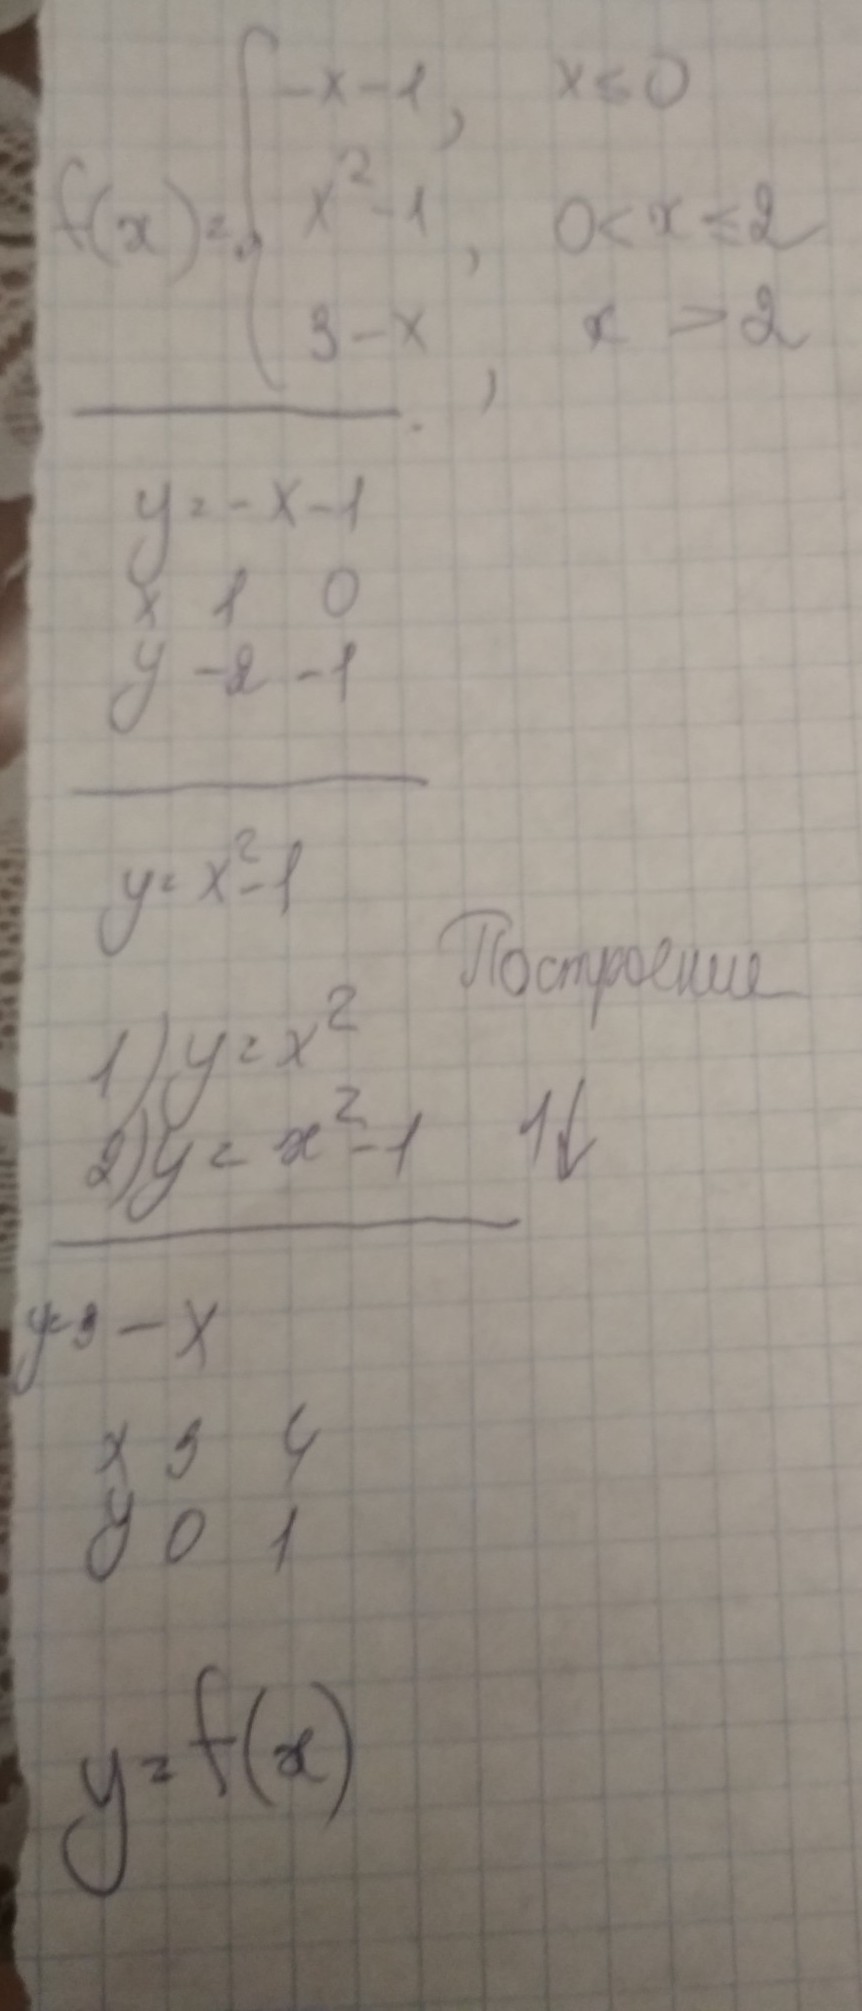 f(x)={ -x-1, x≤0
x²-1, 0<x≤2
3-x, x>2
y=-x-1
x 1 0
y -2 -1
y=x²-1
Построение
1) y=x²
2) y=x²-1 1↓
y=3-x
x 3 4
y 0 1
y=f(x)